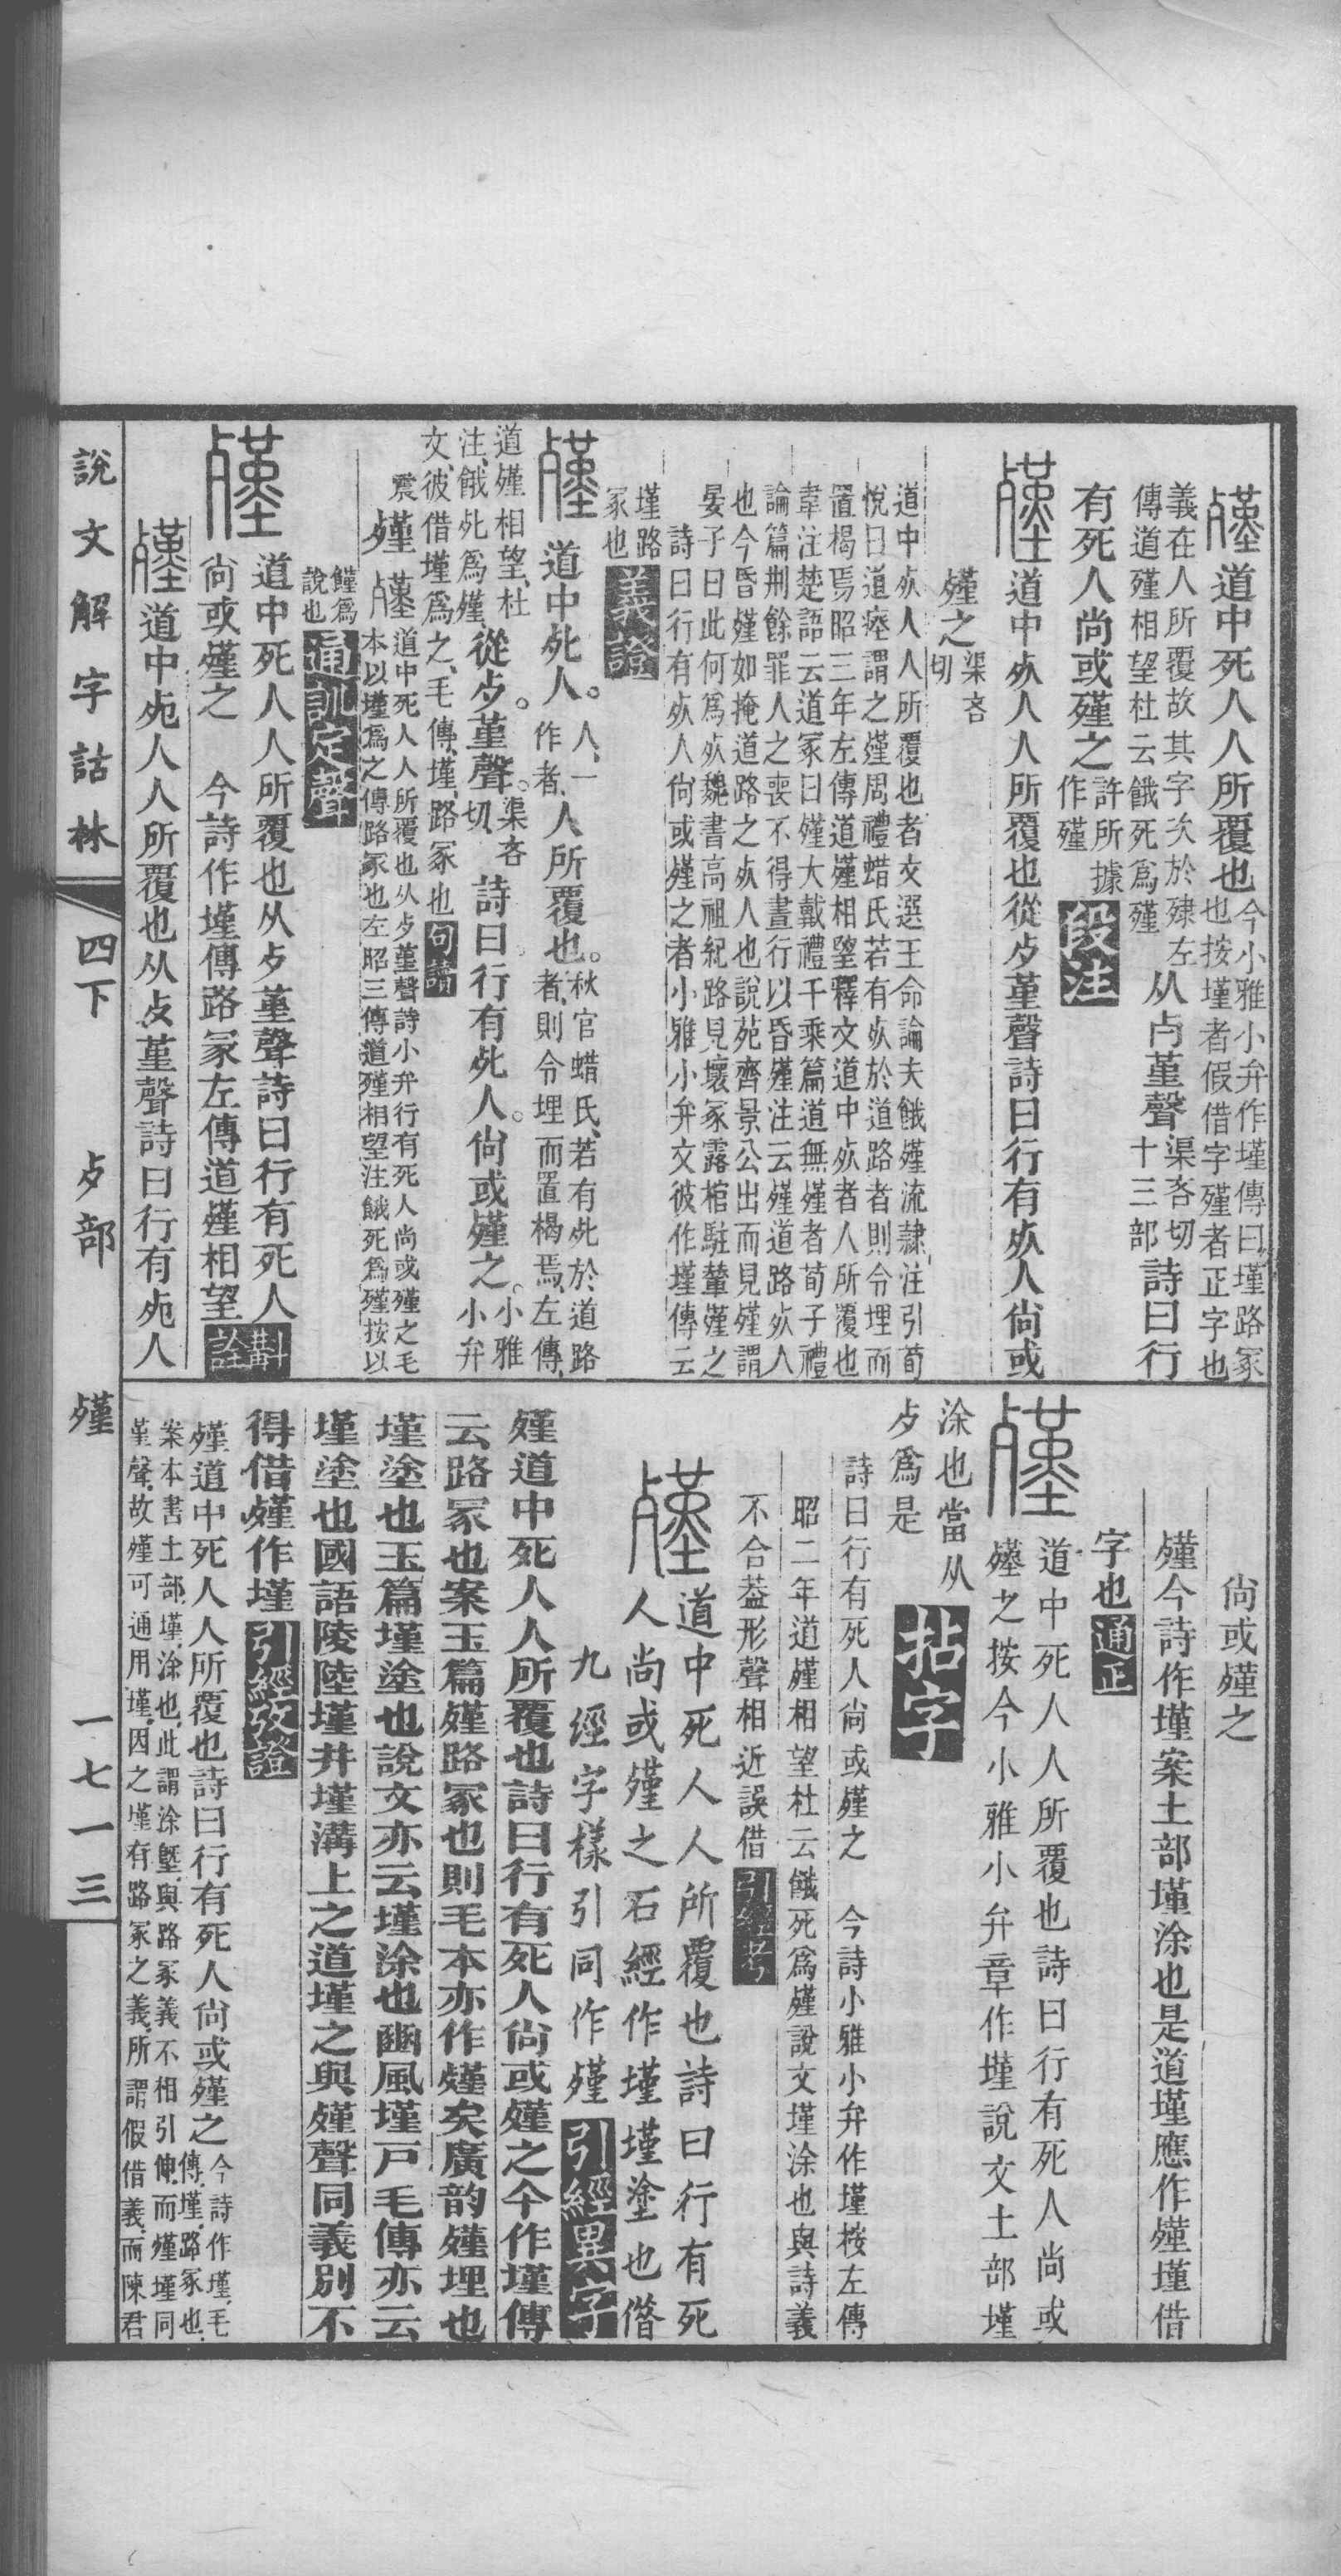 殣道中死人人所覆也今小雅小弁作墐傳曰墐路冢
也按墐者假借字殣者正字也
義在人所覆故其字次於殔左
傳道殣相望杜云餓死爲殣从歺堇聲渠吝切
十三部詩曰行
有死人尚或殣之許所據
作殣段注
殣道中死人人所覆也從歺堇聲詩曰行有死人尙或
殣之渠吝
切
道中死人人所覆也者文選王命論夫餓殣流隷注引荀
悅曰道瘞謂之殣周禮蜡氏若有死於道路者則令埋而
置楬焉昭三年左傳道殣相望釋文道中死者人所覆也
韋注楚語云道冢曰殣大戴禮千乘篇道無殣者荀子禮
論篇刑餘罪人之喪不得晝行以昏殣注云殣道路死人
也今昏殣如掩道路之死人也說苑齊景公出而見殣謂
晏子曰此何爲死魏書高祖紀路見壞冢露棺駐輦殣之
詩曰行有死人尙或殣之者小雅小弁文彼作墐傳云
墐路
冢也義證
殣道中死人。人、一
作者、人所覆也。秋官蜡氏、若有死於道路
者、則令埋而置楬焉、左傳、
道殣相望、杜
注、餓死爲殣、從歺。堇聲。渠吝
切、詩曰行有死人。尙或殣之。小雅
小弁
文、彼借墐爲之、毛傳、墐、路冢也句讀
震殣殣道中死人人所覆也从歺堇聲詩小弁行有死人尚或殣之毛
本以墐爲之傳路冢也左昭三傳道殣相望注餓死爲殣按以
饉爲
說也通訓定聲
殣道中死人人所覆也从歺堇聲詩曰行有死人
尙或殣之　今詩作墐傳路冢左傳道殣相望斠詮
殣道中死人人所覆也从歺堇聲詩曰行有死人
尙或殣之
殣今詩作墐案土部墐涂也是道墐應作殣墐借
字也通正
殣道中死人人所覆也詩曰行有死人尚或
殣之按今小雅小弁章作墐說文土部墐
涂也當从
歺爲是拈字
詩曰行有死人尙或殣之　今詩小雅小弁作墐按左傳
昭二年道殣相望杜云餓死爲殣說文墐涂也與詩義
不合葢形聲相近誤借引經考
殣道中死人人所覆也詩曰行有死
人尚或殣之石經作墐墐塗也偕
九經字樣引同作殣引經異字
殣道中死人人所覆也詩曰行有死人尙或殣之今作墐傳
云路冢也案玉篇殣路冢也則毛本亦作殣矣廣韵殣埋也
墐塗也玉篇墐塗也說文亦云墐涂也豳風墐戸毛傳亦云
墐塗也國語陵陸墐井墐溝上之道墐之與殣聲同義別不
得借殣作墐引經攷證
殣道中死人人所覆也詩曰行有死人尙或殣之今詩作墐、毛
傳、墐、路冢也、
案本書土部、墐、涂也、此謂涂墍、與路冢義不相引伸、而殣墐同
堇聲、故殣可通用墐、因之墐有路冢之義、所謂假借義、而陳君
說文解字詁林
四下　歺部　殣　一七一三